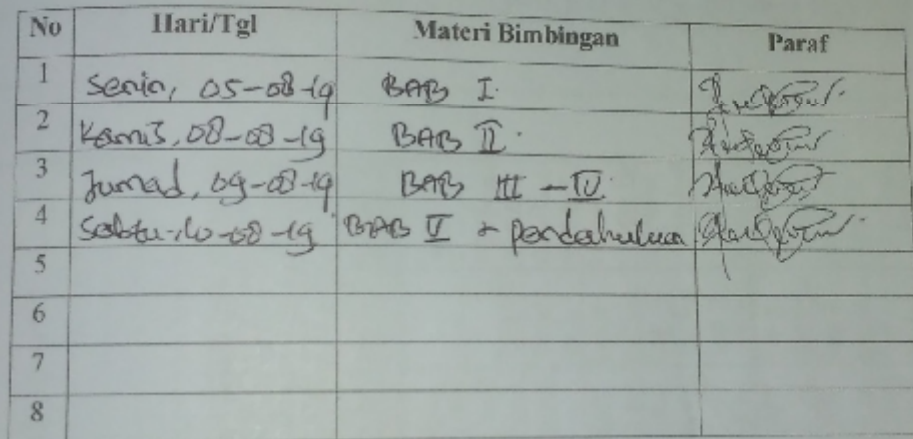 No Hari/Tgl Materi Bimbingan Paraf
1 Senin, 05-08-19 BAB I.
2 Kamis, 08-08-19 BAB II.
3 Jumad, 09-08-19 BAB III - IV
4 Sabtu, 10-08-19 BAB V + pendahuluan
5
6
7
8